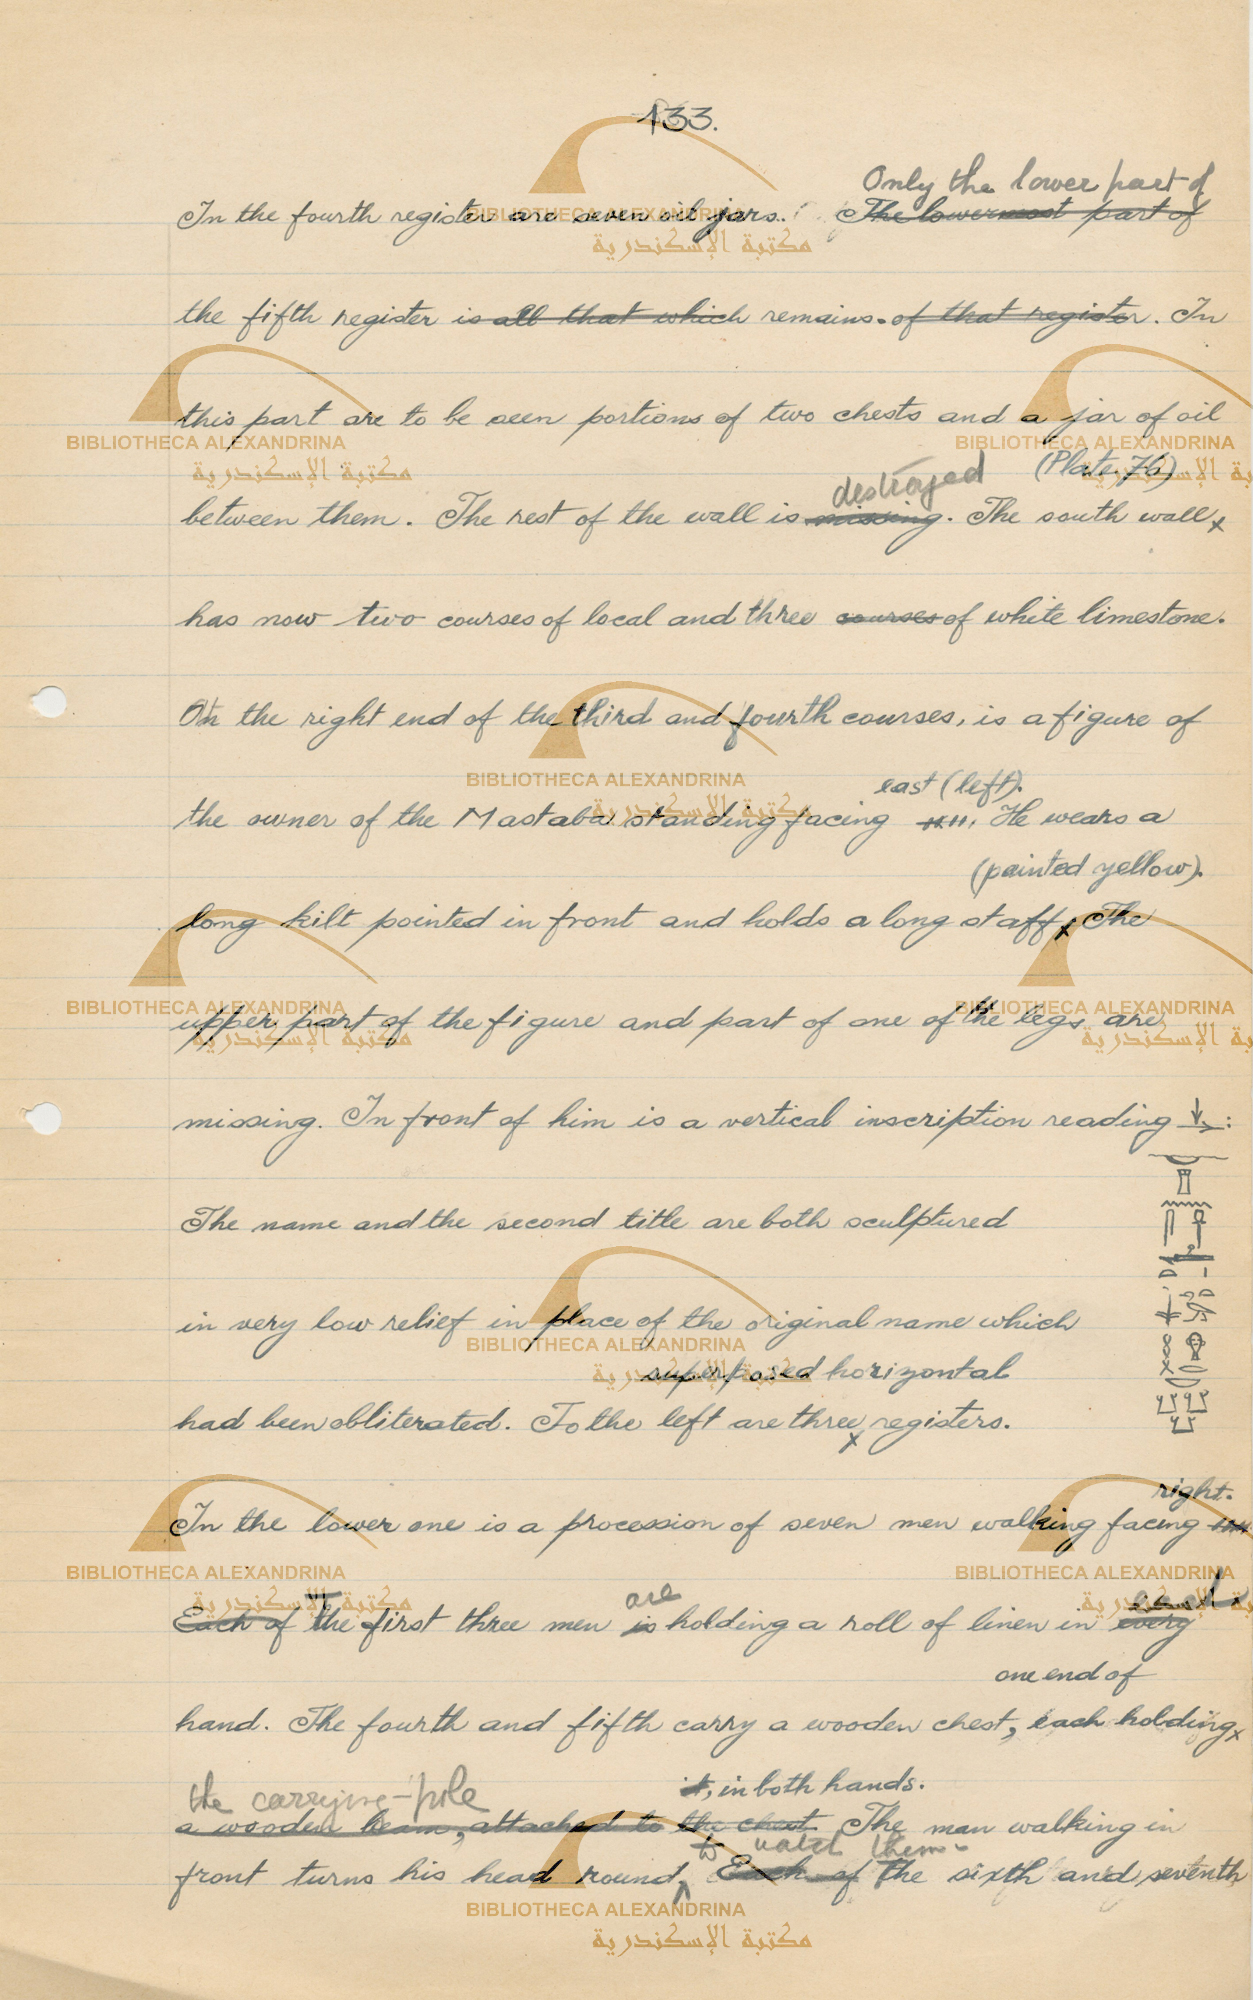 133.
Only the lower part of
In the fourth register are seven oil jars. The lowermost part of
the fifth register is all that which remains. of that register. In
this part are to be seen portions of two chests and a jar of oil
destroyed (Plate 76)
between them. The rest of the wall is missing. The south wall x
has now two courses of local and three courses of white limestone.
On the right end of the third and fourth courses, is a figure of
east (left).
the owner of the Mastaba standing facing He wears a
(painted yellow).
long kilt pointed in front and holds a long staff x The
upper part of the figure and part of one of the legs are
missing. In front of him is a vertical inscription reading :
The name and the second title are both sculptured
in very low relief in place of the original name which
superposed horizontal
had been obliterated. To the left are three x registers.
right.
In the lower one is a procession of seven men walking facing
are each
Each of The first three men is holding a roll of linen in every
one end of
hand. The fourth and fifth carry a wooden chest, each holding x
the carrying-pole it, in both hands.
a wooden beam, attached to the chest The man walking in
to watch them.
front turns his head round. Each of The sixth and seventh
BIBLIOTHECA ALEXANDRINA
مكتبة الإسكندرية